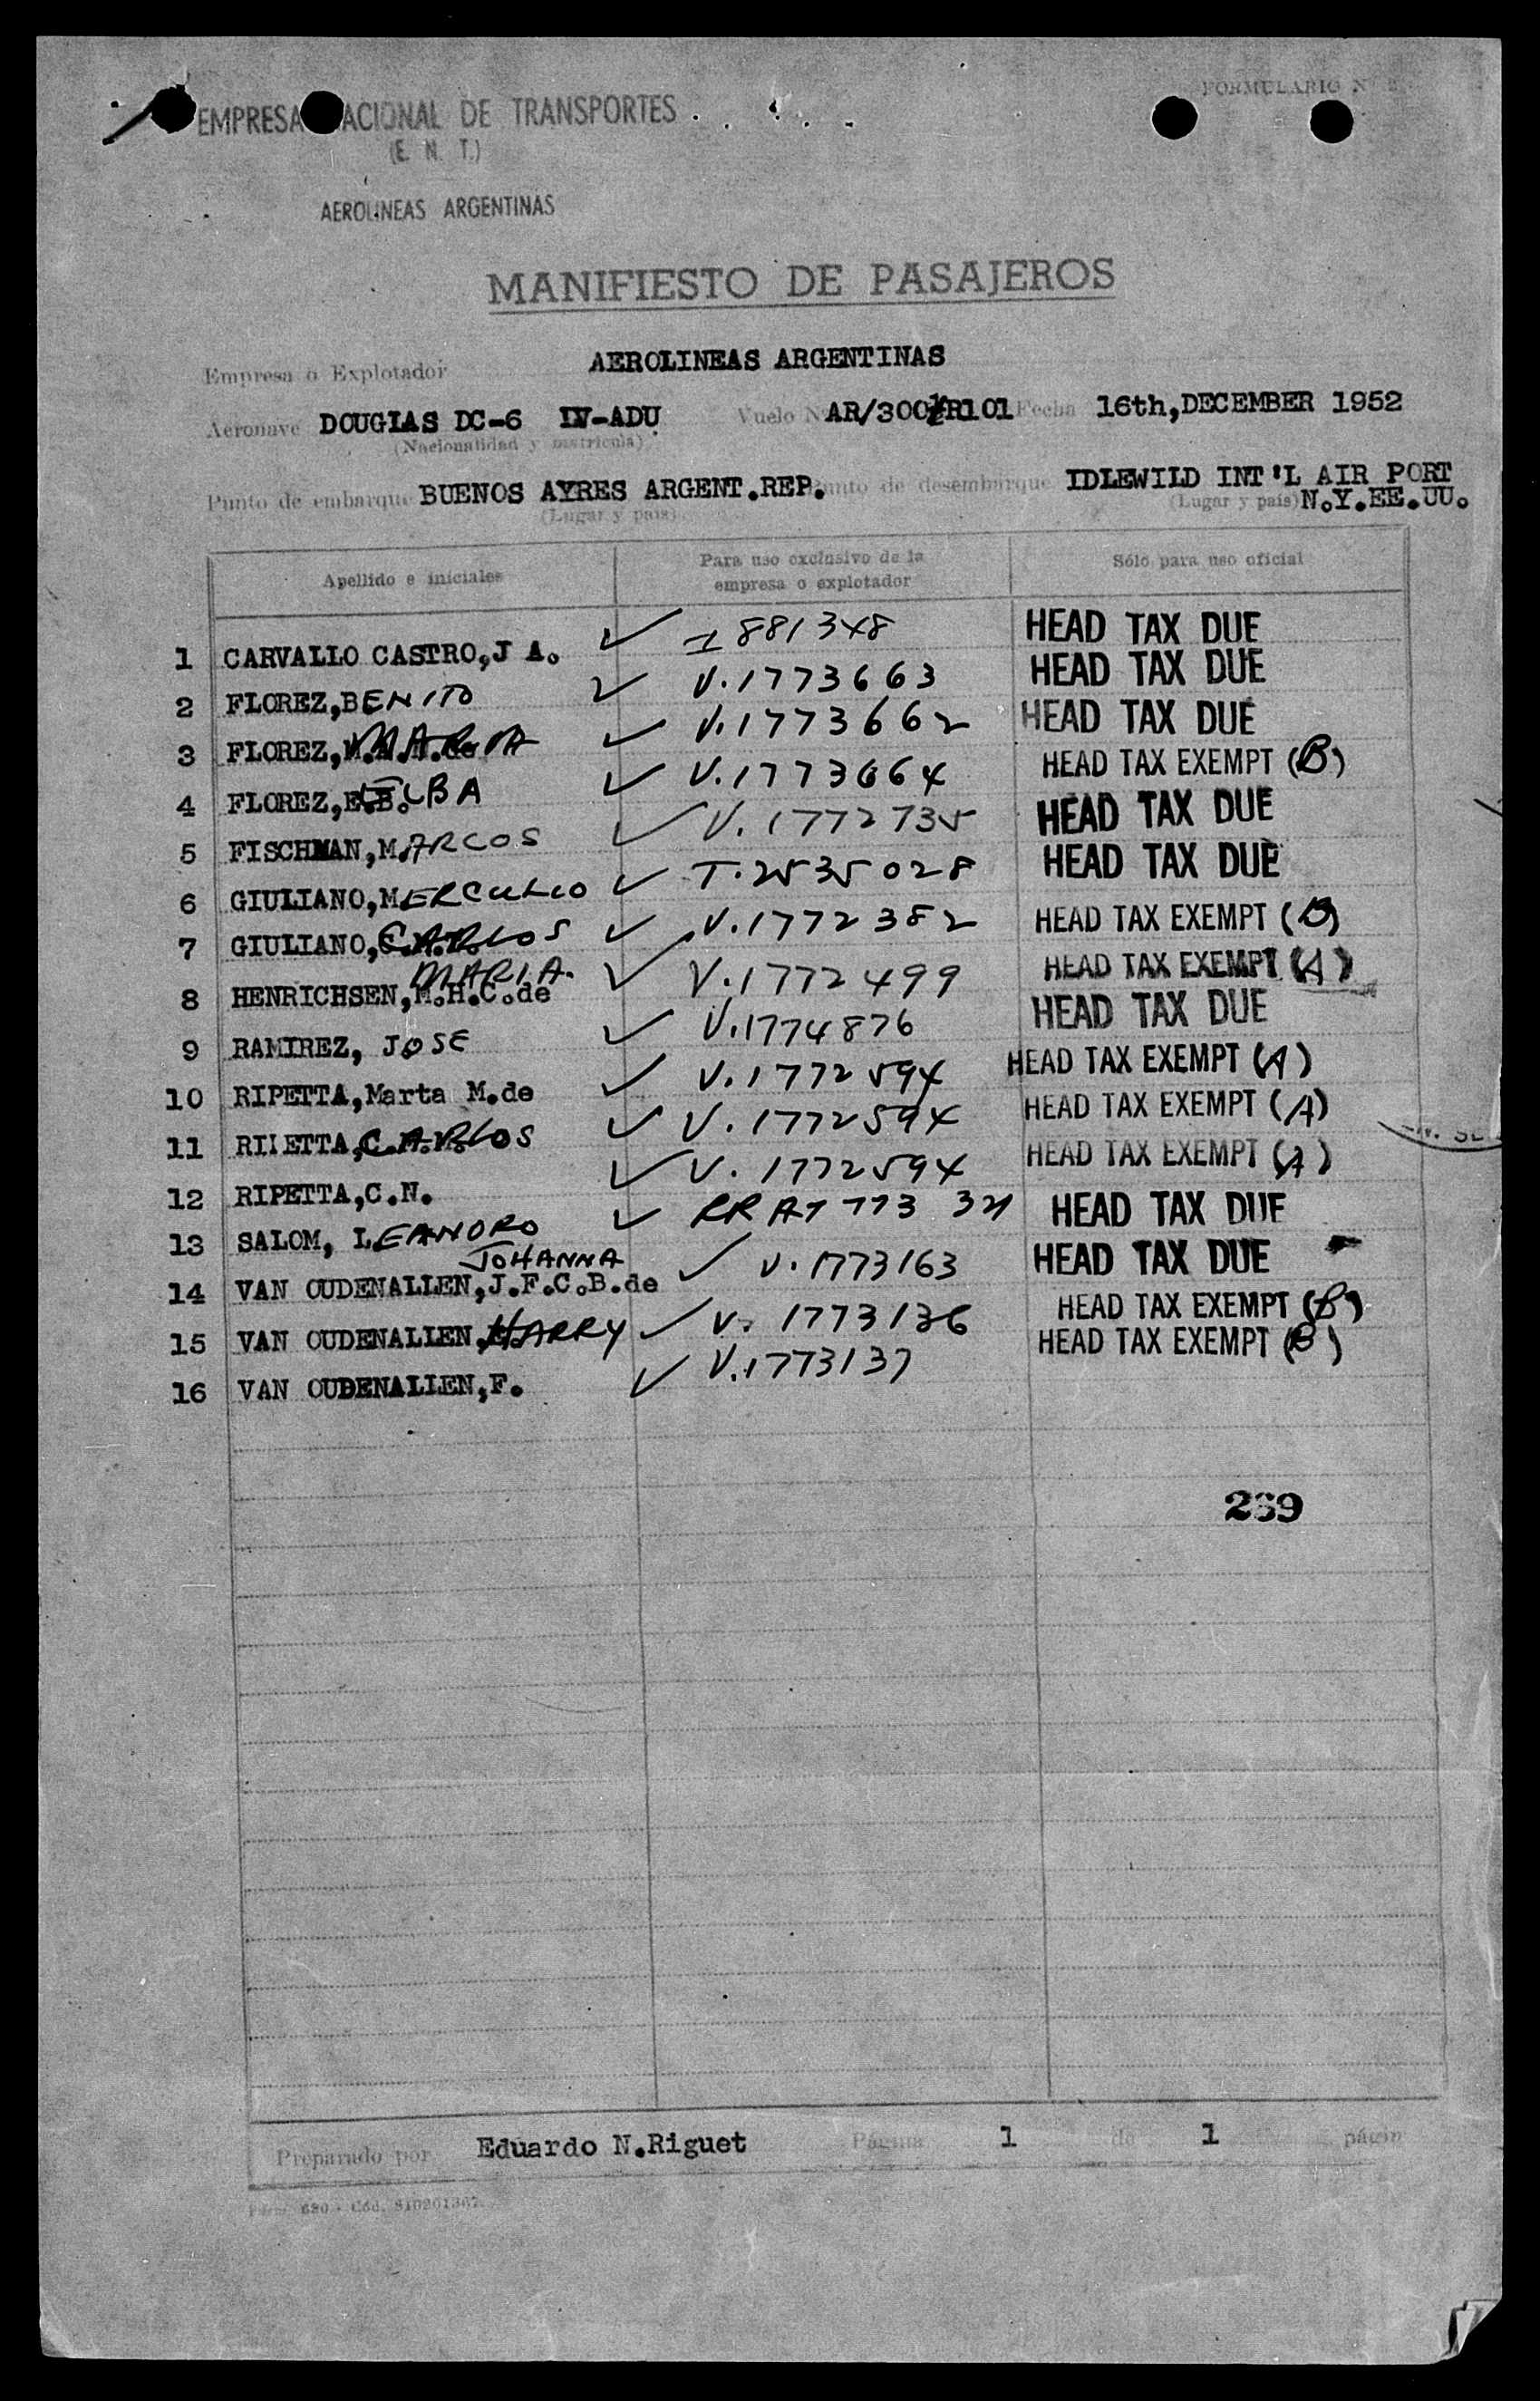 FORMULARIO N
EMPRESA NACIONAL DE TRANSPORTES
(E. N. T.)
AEROLINEAS ARGENTINAS
MANIFIESTO DE PASAJEROS
Empresa o Explotador AEROLINEAS ARGENTINAS
Aeronave DOUGLAS DC-6 LV-ADU Vuelo Nº AR/300 R101 Fecha 16th,DECEMBER 1952
(Nacionalidad y matrícula)
Punto de embarque BUENOS AYRES ARGENT.REP. Punto de desembarque IDLEWILD INT'L AIR PORT
(Lugar y país) (Lugar y país) N.Y.EE.UU.
Apellido e iniciales Para uso exclusivo de la empresa o explotador Sólo para uso oficial
1 CARVALLO CASTRO,J A. ✓ I 881348 HEAD TAX DUE
2 FLOREZ,BENITO ✓ V.1773663 HEAD TAX DUE
3 FLOREZ, MARIA ✓ V.1773662 HEAD TAX DUE
4 FLOREZ,E.B. ELBA ✓ V.1773664 HEAD TAX EXEMPT (B)
5 FISCHMAN,MARCOS ✓ V.1772735 HEAD TAX DUE
6 GIULIANO,MERCULIO ✓ T.2535028 HEAD TAX DUE
7 GIULIANO,CARLOS ✓ V.1772382 HEAD TAX EXEMPT (B)
8 HENRICHSEN,M.H.C.de MARIA. ✓ V.1772499 HEAD TAX EXEMPT (A)
9 RAMIREZ, JOSE ✓ V.1774876 HEAD TAX DUE
10 RIPETTA,Marta M.de ✓ V.1772594 HEAD TAX EXEMPT (A)
11 RIPETTA,CARLOS ✓ V.1772594 HEAD TAX EXEMPT (A)
12 RIPETTA,C.N. ✓ V.1772594 HEAD TAX EXEMPT (A)
13 SALOM, LEANDRO ✓ HEAD TAX DUE
14 VAN OUDENALLEN,J.F.C.B.de JOHANNA ✓ V.1773163 HEAD TAX DUE
15 VAN OUDENALLEN,HARRY ✓ V.1773136 HEAD TAX EXEMPT (B)
16 VAN OUDENALLEN,F. ✓ V.1773137 HEAD TAX EXEMPT (B)
269
Preparado por Eduardo N.Riguet Página 1 de 1 págin